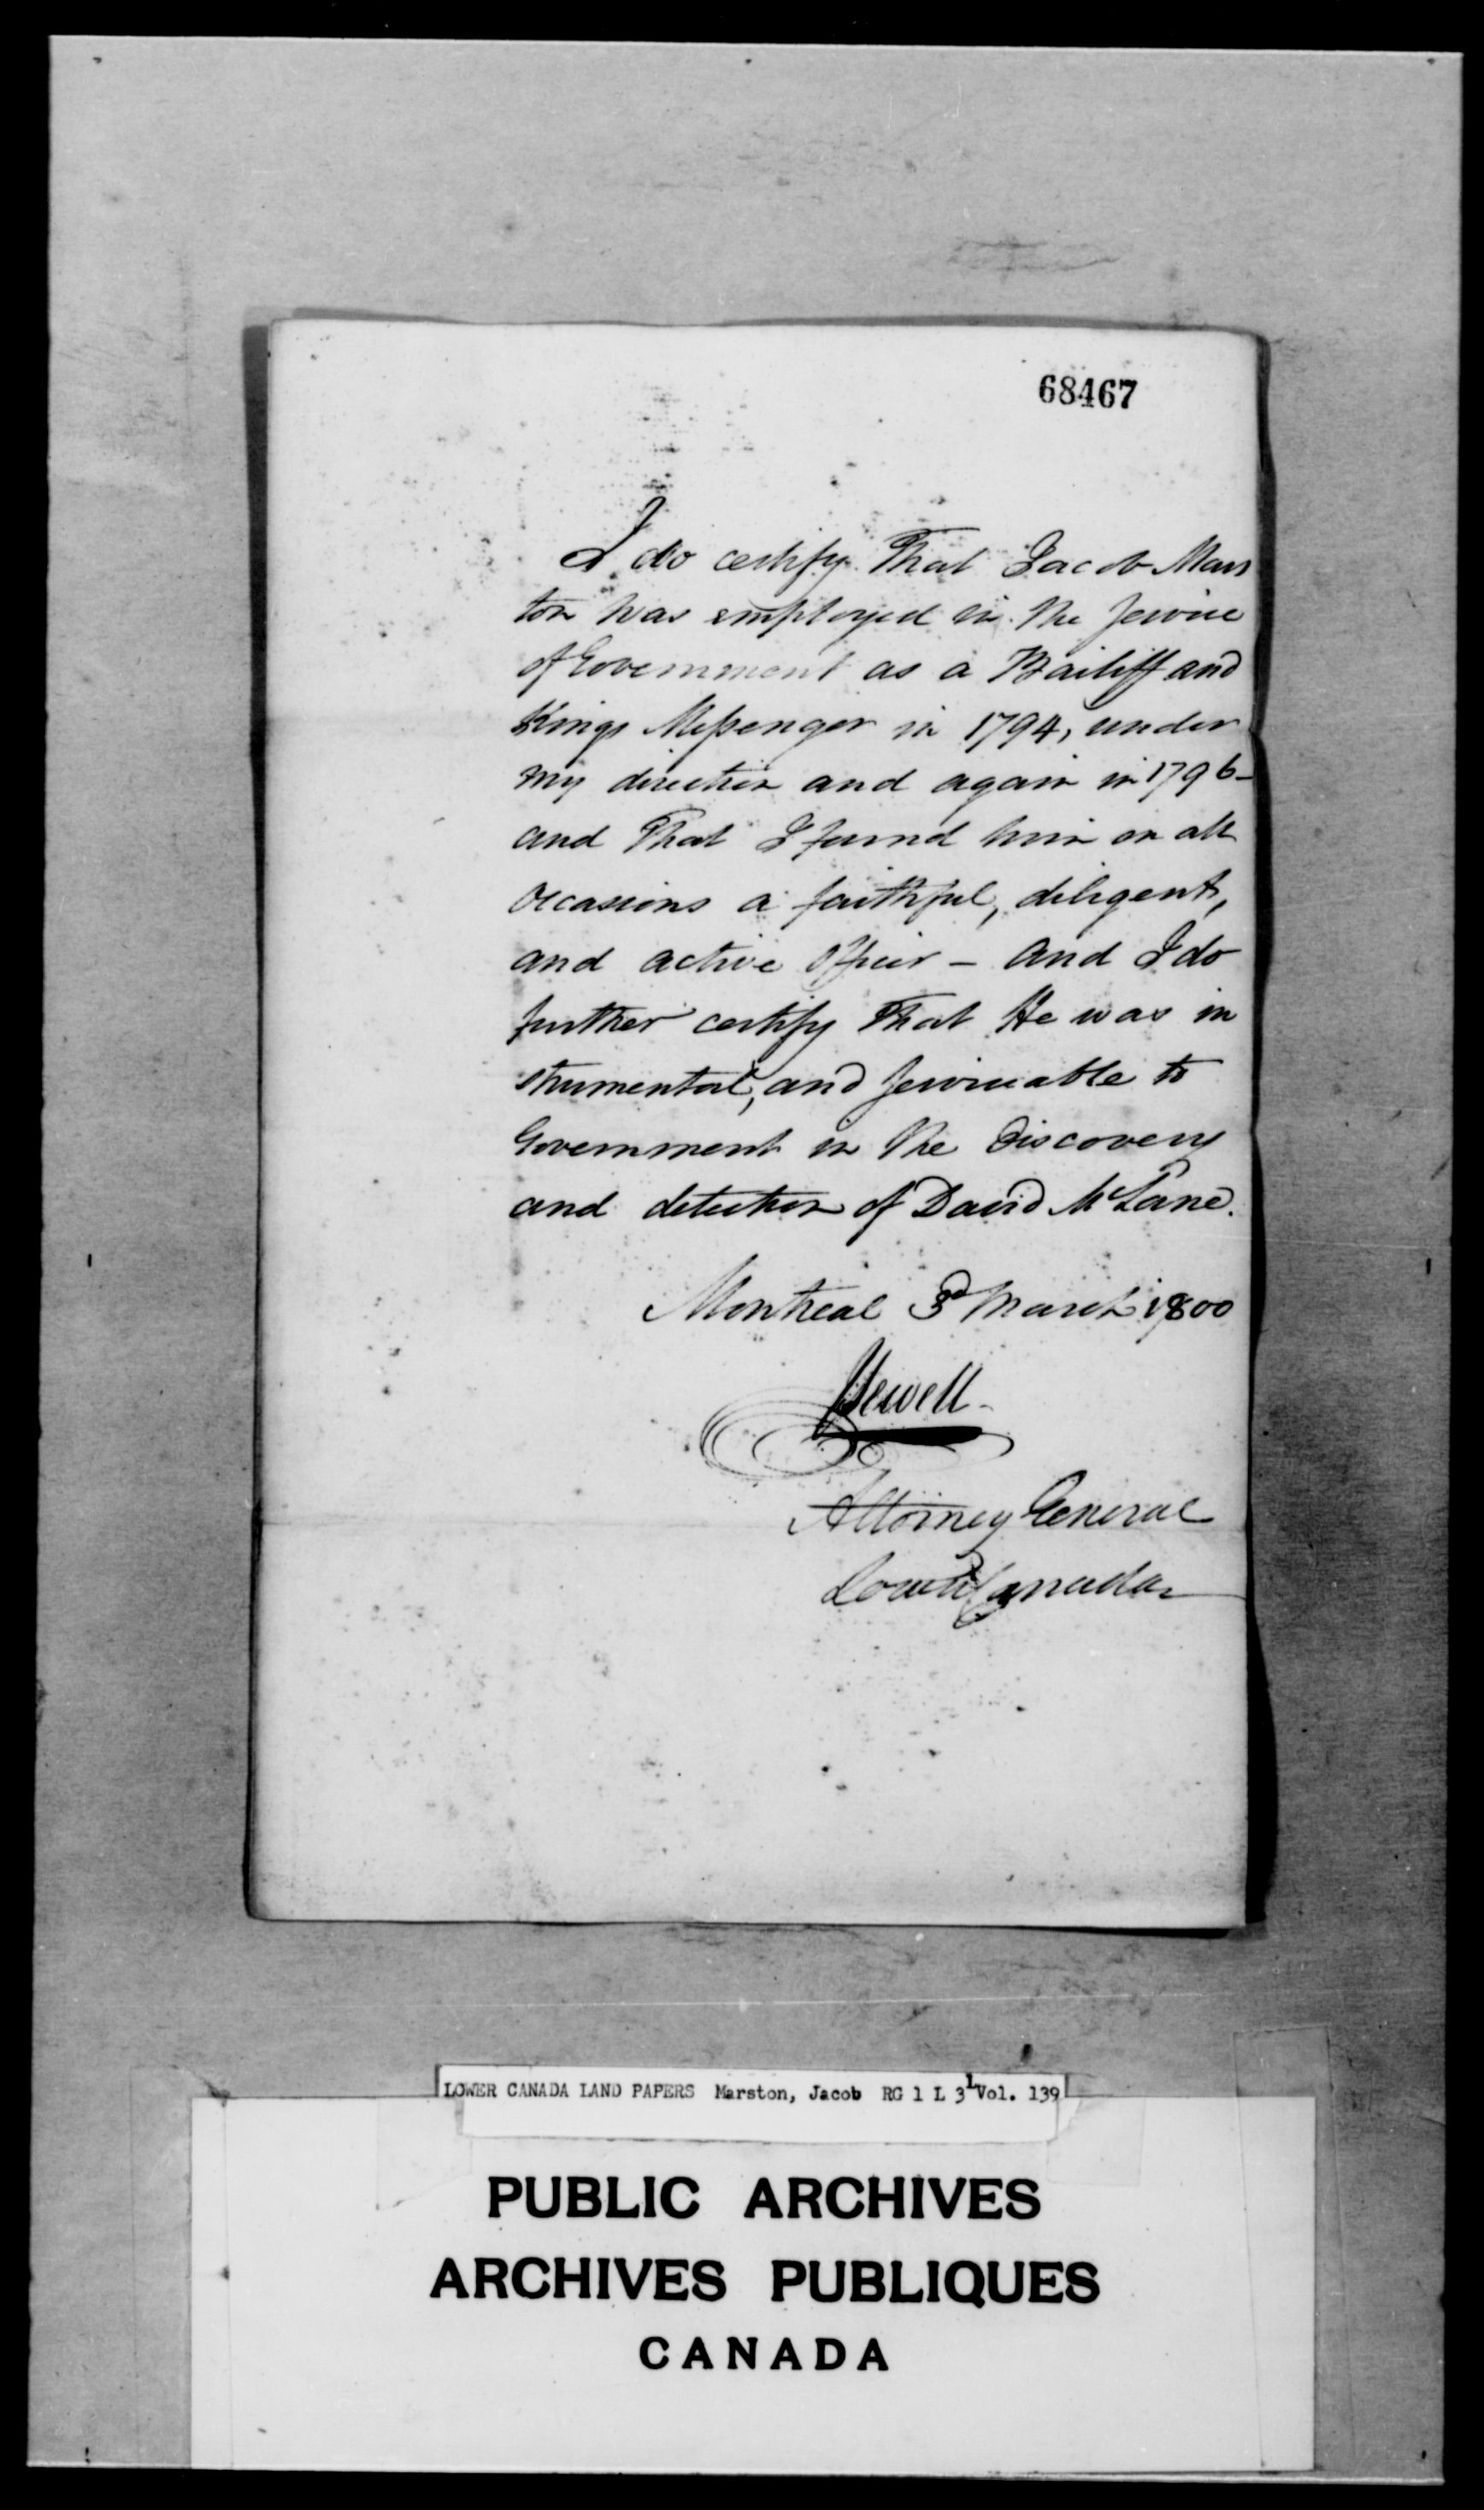 68467
I do certify That Jacob Mars
ton was employed in the Service
of Government as a Bailiff and
Kings Messenger in 1794, under
my direction and again in 1796-
and That I found him on all
occasions a faithful, diligent,
and active Officer - and I do
further certify That He was in
strumental, and Serviceable to
Government in the Discovery
and detection of David McLane.
Montreal 3d March 1800
JSewell-
Attorney General
Lower Canada
LOWER CANADA LAND PAPERS Marston, Jacob RG 1 L 3L Vol. 139
PUBLIC ARCHIVES
ARCHIVES PUBLIQUES
CANADA